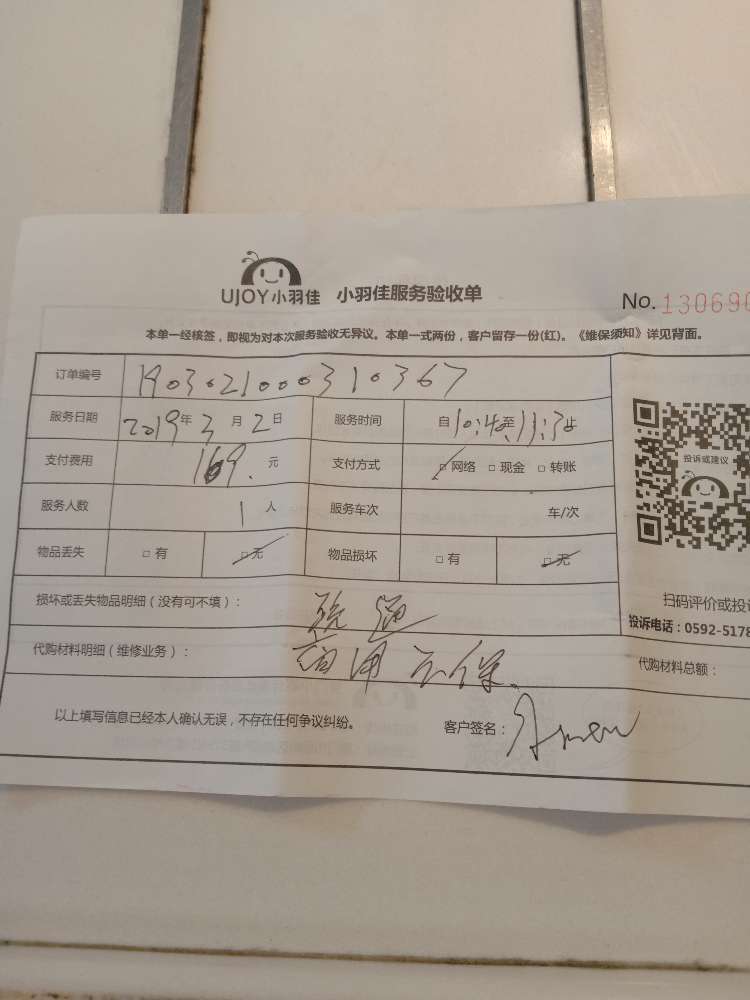 UJOY小羽佳 小羽佳服务验收单
No. 130690
本单一经核签，即视为对本次服务验收无异议。本单一式两份，客户留存一份(红)。《维保须知》详见背面。
订单编号 1903021000310367
服务日期 2019年3月2日 服务时间 自10:40至11:30止
支付费用 169.元 支付方式 □网络 □现金 □转账
投诉或建议
服务人数 1人 服务车次 车/次
物品丢失 □有 □无 物品损坏 □有 □无
扫码评价或投
损坏或丢失物品明细（没有可不填）：
投诉电话：0592-5178
代购材料明细（维修业务）： 不保
代购材料总额：
以上填写信息已经本人确认无误，不存在任何争议纠纷。 客户签名：